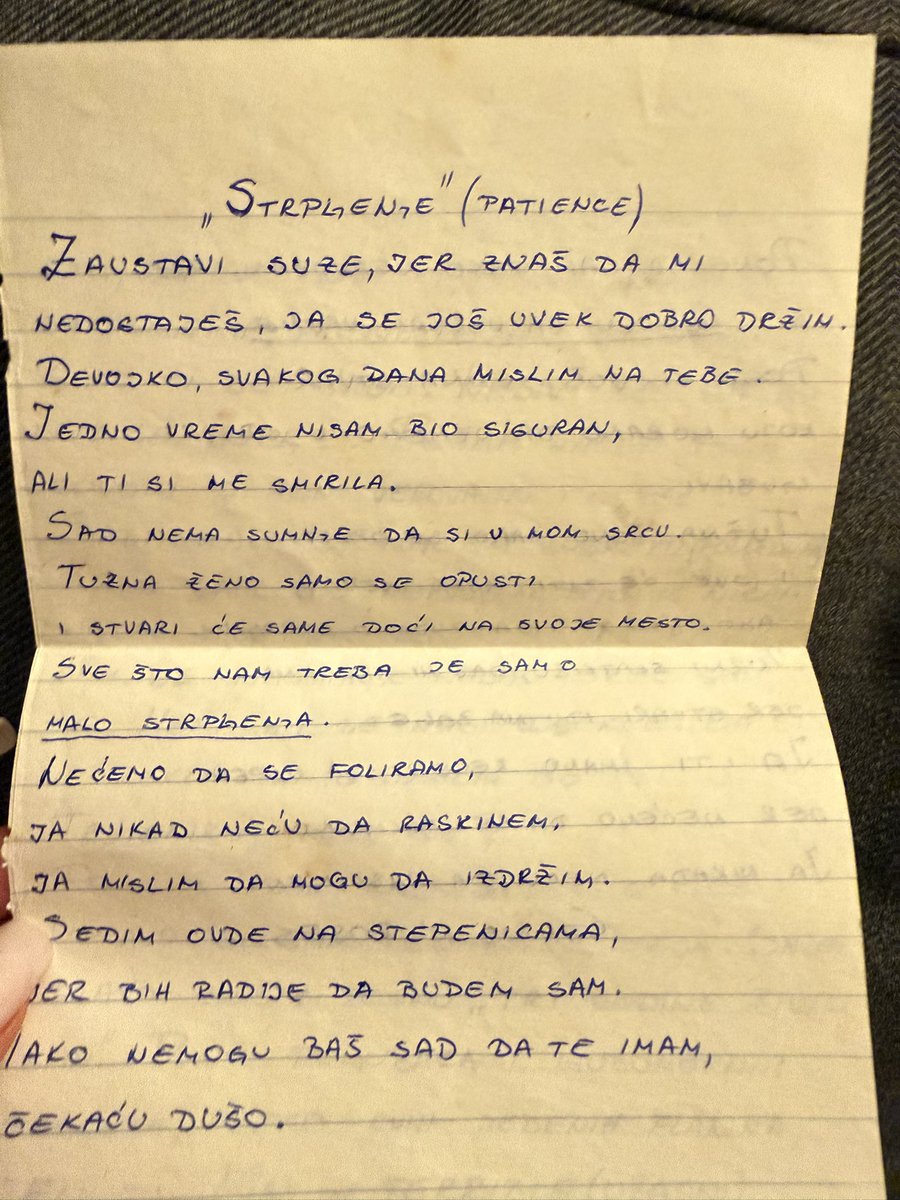 „Strpљenљe" (PATIENCE)
ZAUSTAVI SUZE, JER ZNAŠ DA MI
NEDOSTAJEŠ, JA SE JOŠ UVEK DOBRO DRŽIM.
DEVOJKO, SVAKOG DANA MISLIM NA TEBE.
JEDNO VREME NISAM BIO SIGURAN,
ALI TI SI ME SMIRILA.
SAD NEMA SUMNJE DA SI U MOM SRCU.
TUŽNA ŽENO SAMO SE OPUSTI
I STVARI ĆE SAME DOĆI NA SVOJE MESTO.
SVE ŠTO NAM TREBA JE SAMO
MALO STRPLJENJA.
NEĆEMO DA SE FOLIRAMO,
JA NIKAD NEĆU DA RASKINEM,
JA MISLIM DA MOGU DA IZDRŽIM.
SEDIM OVDE NA STEPENICAMA,
JER BIH RADIJE DA BUDEM SAM.
IAKO NEMOGU BAŠ SAD DA TE IMAM,
ČEKAĆU DUŠO.